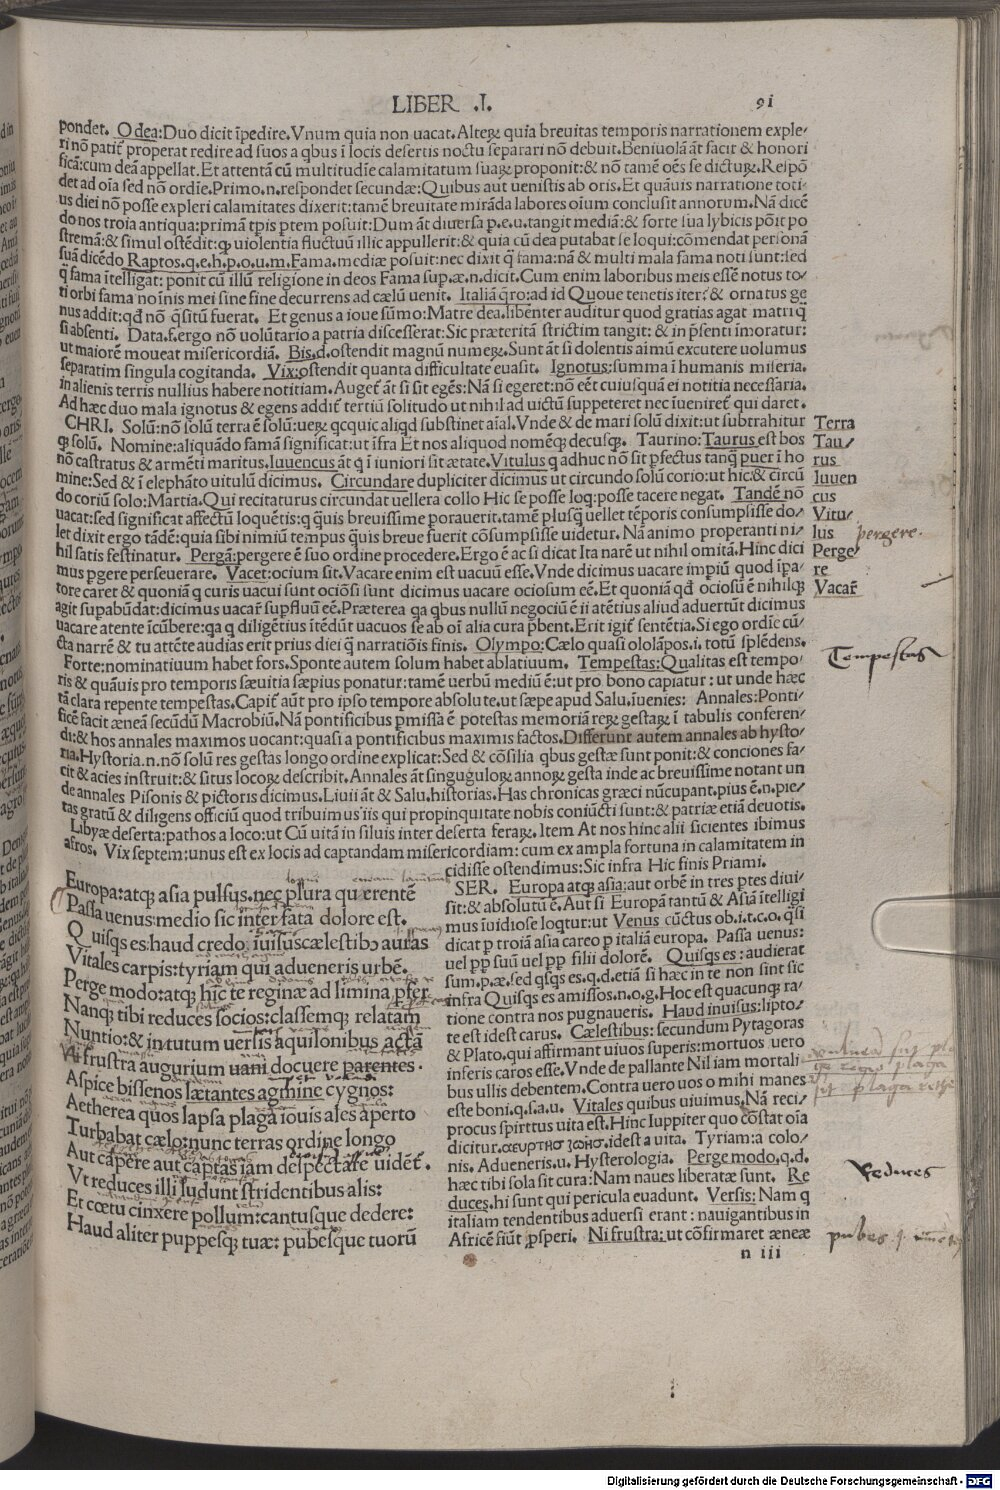 LIBER .I.
91
pondet. O dea:Duo dicit ĩpedire.Vnum quia non uacat.Alteꝝ quia breuitas temporis narrationem exple/
ri nõ patit᷑ properat redire ad suos a qbus ĩ locis desertis noctu separari nõ debuit.Beniuolã ãt facit & honori
ficã:cum deã appellat.Et attentã cũ multitudĩe calamitatum suaꝝ proponit:& nõ tamẽ oẽs se dictuꝝ.Respõ
det ad oĩa sed nõ ordĩe.Primo.n.respondet secundæ:Quibus aut uenistis ab oris.Et quãuis narratione toti/
us diei nõ posse expleri calamitates dixerit:tamẽ breuitate mirãda labores oium conclusit annorum.Nã dicẽ
do nos troia antiqua:primã tpis ptem posuit:Dum ãt diuersa p.e.u.tangit mediã:& forte sua lybicis põit po
stremã:& simul ostẽdit:ꝙ uiolentia fluctuũ illic appullerit:& quia cũ dea putabat se loqui:cõmendat personã
suã dicẽdo Raptos.q.e.h.p.o.u.m.Fama.mediæ posuit:nec dixit q̃ fama:nã & multi mala fama noti sunt:sed
q̃ fama ĩtelligat: ponit cũ illũ religione in deos Fama sup.æ.n.dicit.Cum enim laboribus meis essẽ notus to/
ti orbi fama noĩnis mei sine fine decurrens ad cælũ uenit. Italiã q̃ro:ad id Quoue tenetis iter:& ornatus ge
nus addit:qđ nõ q̃situ̅ fuerat. Et genus a ioue sũmo:Matre dea.libenter auditur quod gratias agat matri q̃
si absenti. Data.f.ergo nõ uolũtario a patria discesserat:Sic præteritã strictim tangit:& in p̃senti ĩmoratur:
ut maiorẽ moueat misericordiã. Bis.d.ostendit magnũ numeꝝ.Sunt ãt si dolentis aĩmũ excutere uolumus
separatim singula cogitanda. Vix:ostendit quanta difficultate euasit. Ignotus:summa ĩ humanis miseria.
in alienis terris nullius habere notitiam. Auget᷑ ãt si sit egẽs:Nã si egeret:nõ eẽt cuiusquã ei notitia necessaria.
Ad hæc duo mala ignotus & egens addit᷑ tertiũ solitudo ut nihil ad uictũ suppeteret nec ĩueniret᷑ qui daret.
CHRI. Solũ:nõ solũ terra ẽ solũ:ueꝝ qcquic aliqd substinet aĩal.Vnde & de mari solũ dixit:ut subtrahitur
ꝙ solũ. Nomine:aliquãdo famã significat:ut ĩfra Et nos aliquod nomẽq; decusq;. Taurino:Taurus est bos
nõ castratus & armẽti maritus.Iuuencus ãt q ĩ iuniori sit ætate.Vitulus q adhuc nõ sit pfectus tanq̃ puer ĩ ho
mine:Sed & ĩ elephãto uitulũ dicimus. Circundare dupliciter dicimus ut circundo solũ corio:ut hic:& circũ
do coriũ solo:Martia.Qui recitaturus circundat uellera collo Hic se posse loq:posse tacere negat. Tandẽ nõ
uacat:sed significat affectũ loquẽtis:q q̃uis breuissime porauerit.tamẽ plusq̃ uellet tẽporis consumpsisse do/
let dixit ergo tãdẽ:quia sibi nimiũ tempus q̃uis breue fuerit cõsumpsisse uidetur. Nã animo properanti ni/
hil satis festinatur. Pergã:pergere ẽ suo ordine procedere.Ergo ẽ ac si dicat Ita narẽ ut nihil omitã.Hinc dici
mus pgere perseuerare. Vacet:ocium sit.Vacare enim est uacuũ esse.Vnde dicimus uacare impiũ quod ĩpa/
tore caret & quoniã q curis uacui sunt ociõsi sunt dicimus uacare ociosum eẽ.Et quoniã qđ ociosũ ẽ nihilq;
agit supabũdat:dicimus uacar᷑ supfluũ eẽ.Præterea qa qbus nullũ negociũ ẽ ii atẽtius aliud aduertũt dicimus
uacare atente ĩcũbere:qa q diligẽtius ĩtẽdũt uacuos se ab oĩ alia cura p̃bent.Erit igit᷑ sentẽtia.Si ego ordĩe cũ/
cta narrẽ & tu attẽte audias erit prius diei q̃ narratiõis finis. Olympo:Cælo quasi ololãpos.i.totũ splẽdens.
Forte:nominatiuum habet fors.Sponte autem solum habet ablatiuum. Tempestas:Qualitas est tempo/
ris & quãuis pro temporis sæuitia sæpius ponatur:tamẽ uerbũ mediũ ẽ:ut pro bono capiatur : ut unde hæc
tã clara repente tempestas.Capit᷑ aũt pro ipso tempore absolute.ut sæpe apud Salu.ĩuenies: Annales:Ponti/
ficẽ facit æneã secũdũ Macrobiũ.Nã pontificibus pmissa ẽ potestas memoriã reꝝ gestaꝝ ĩ tabulis conferen/
di:& hos annales maximos uocant:quasi a pontificibus maximis factos.Differunt autem annales ab hysto/
ria.Hystoria.n.nõ solũ res gestas longo ordine explicat:Sed & cõsilia qbus gestæ sunt ponit:& conciones fa/
cit & acies instruit:& situs locoꝝ describit.Annales ãt singuloꝝ annoꝝ gesta inde ac breuissime notant un
de annales Pisonis & pictoris dicimus.Liuii ãt & Salu.historias.Has chronicas græci nũcupant.pius ẽ.n.pie/
tas gratũ & diligens officiũ quod tribuimus iis qui propinquitate nobis coniũcti sunt:& patriæ etiã deuotis.
Libyæ deserta:pathos a loco:ut Cũ uitã in siluis inter deserta feraꝝ. Item At nos hinc alii sicientes ibimus
afros. Vix septem:unus est ex locis ad captandam misericordiam: cum ex ampla fortuna in calamitatem in
cidisse ostendimus:Sic infra Hic finis Priami.
Terra
Tau/
rus
Iuuen
cus
Vitu/
lus
pergere.
Perge/
re
Vacar᷑
Tempestas
Europa:atq; asia pulsus.nec plura querentẽ
Passa uenus:medio sic inter fata dolore est.
Quisqs es:haud credo ĩuisus cælestibꝰ auras
Vitales carpis:tyriam qui adueneris urbẽ.
Perge modo:atq; hĩc te reginæ ad limina pfer
Nanq; tibi reduces socios:classemq; relatam
Nuntio:& in tutum uersis aquilonibus actã
Ni frustra augurium uani docuere parentes.
Aspice bissenos lætantes agmine cygnos:
Aetherea quos lapsa plaga iouis ales aperto
Turbabat cælo:nunc terras ordine longo
Aut capere aut captas iam despectare uident᷑.
Vt reduces illi ludunt stridentibus alis:
Et cœtu cinxere pollum:cantusque dedere:
Haud aliter puppesq; tuæ: pubesque tuorũ
SER. Europa atq; asia:aut orbẽ in tres ptes diui/
sit:& absolutũ ẽ.Aut si Europã tantũ & Asiã ĩtelligi
mus ĩuidiose loqtur:ut Venus cũctus ob.i.t.c.o.q̃si
dicat p troiã asia careo p italiã europa. Passa uenus:
uel pp suũ uel pp filii dolorẽ. Quisqs es : audierat
sum.p.æ.sed qsqs es.q.d.etiã si hæc in te non sint sic
infra Quisqs es amissos.n.o.g.Hoc est quacunq; ra/
tione contra nos pugnaueris. Haud inuisus:lipto/
te est idest carus. Cælestibus: secundum Pytagoras
& Plato.qui affirmant uiuos superis:mortuos uero
inferis caros esse.Vnde de pallante Nil iam mortali
bus ullis debentem.Contra uero uos o mihi manes
este boni.q.s.a.u. Vitales quibus uiuimus.Nã reci/
procus spirttus uita est.Hinc Iuppiter quo cõstat oĩa
dicitur.αευρτησ ζωησ.idest a uita. Tyriam:a colo/
nis. Adueneris.u. Hysterologia. Perge modo.q.d.
hæc tibi sola sit cura:Nam naues liberatæ sunt. Re
duces.hi sunt qui pericula euadunt. Versis: Nam q
italiam tendentibus aduersi erant : nauigantibus in
Africẽ fiũt pspĕri. Ni frustra: ut cõfirmaret æneæ
n iii
Reduces
pubes
Digitalisierung gefördert durch die Deutsche Forschungsgemeinschaft - DFG